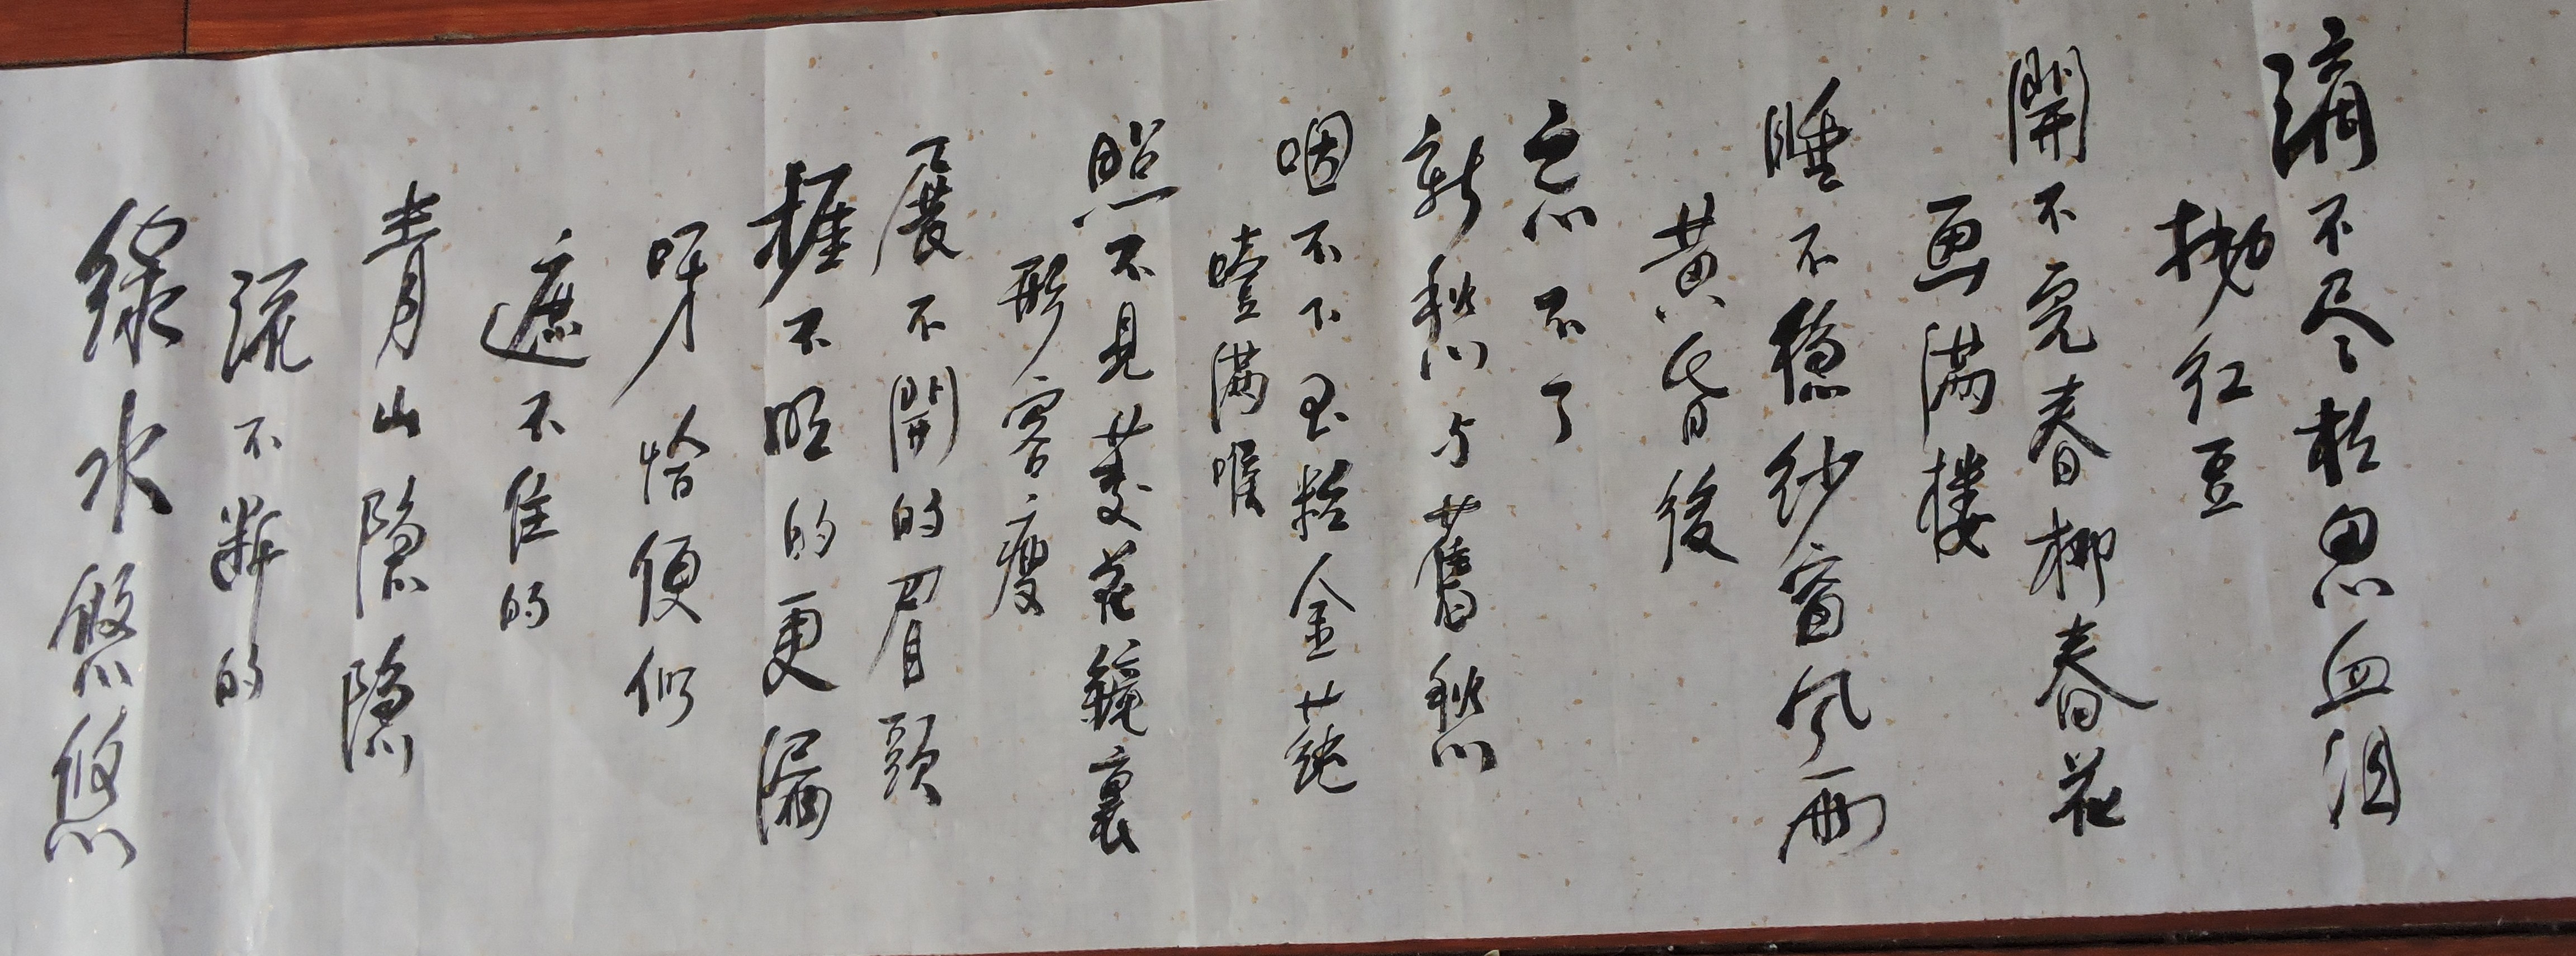 滴不尽相思血泪
抛红豆
開不完春柳春花
画满楼
睡不稳纱窗风雨
黄昏後
忘不了
新愁与舊愁
咽不下玉粒金莼
噎满喉
照不見菱花鏡裏
形容瘦
展不開的眉頭
捱不明的更漏
呀恰便似
遮不住的
青山隐隐
流不断的
绿水悠悠